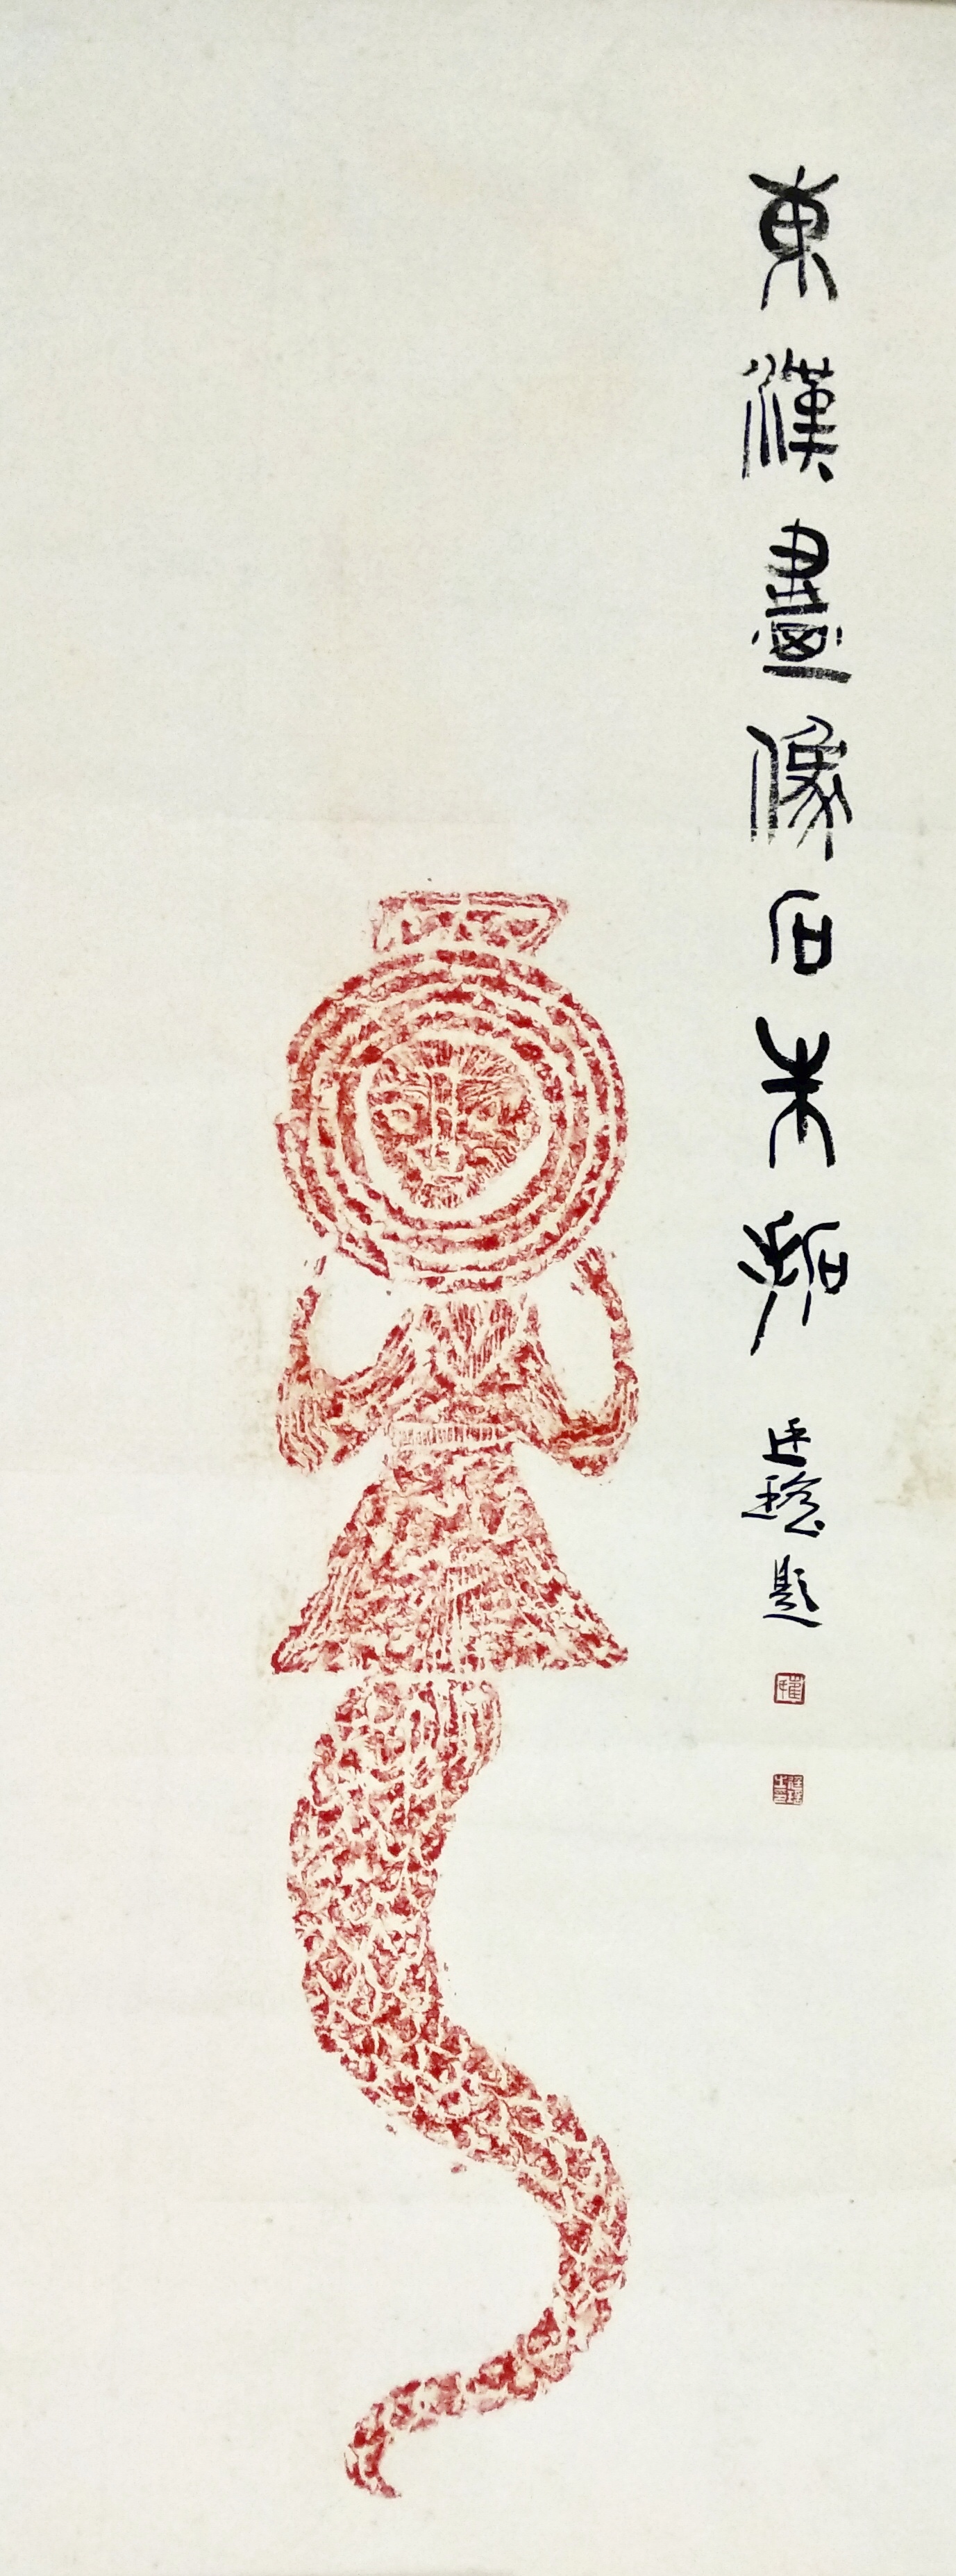 東漢畫像石朱拓
題